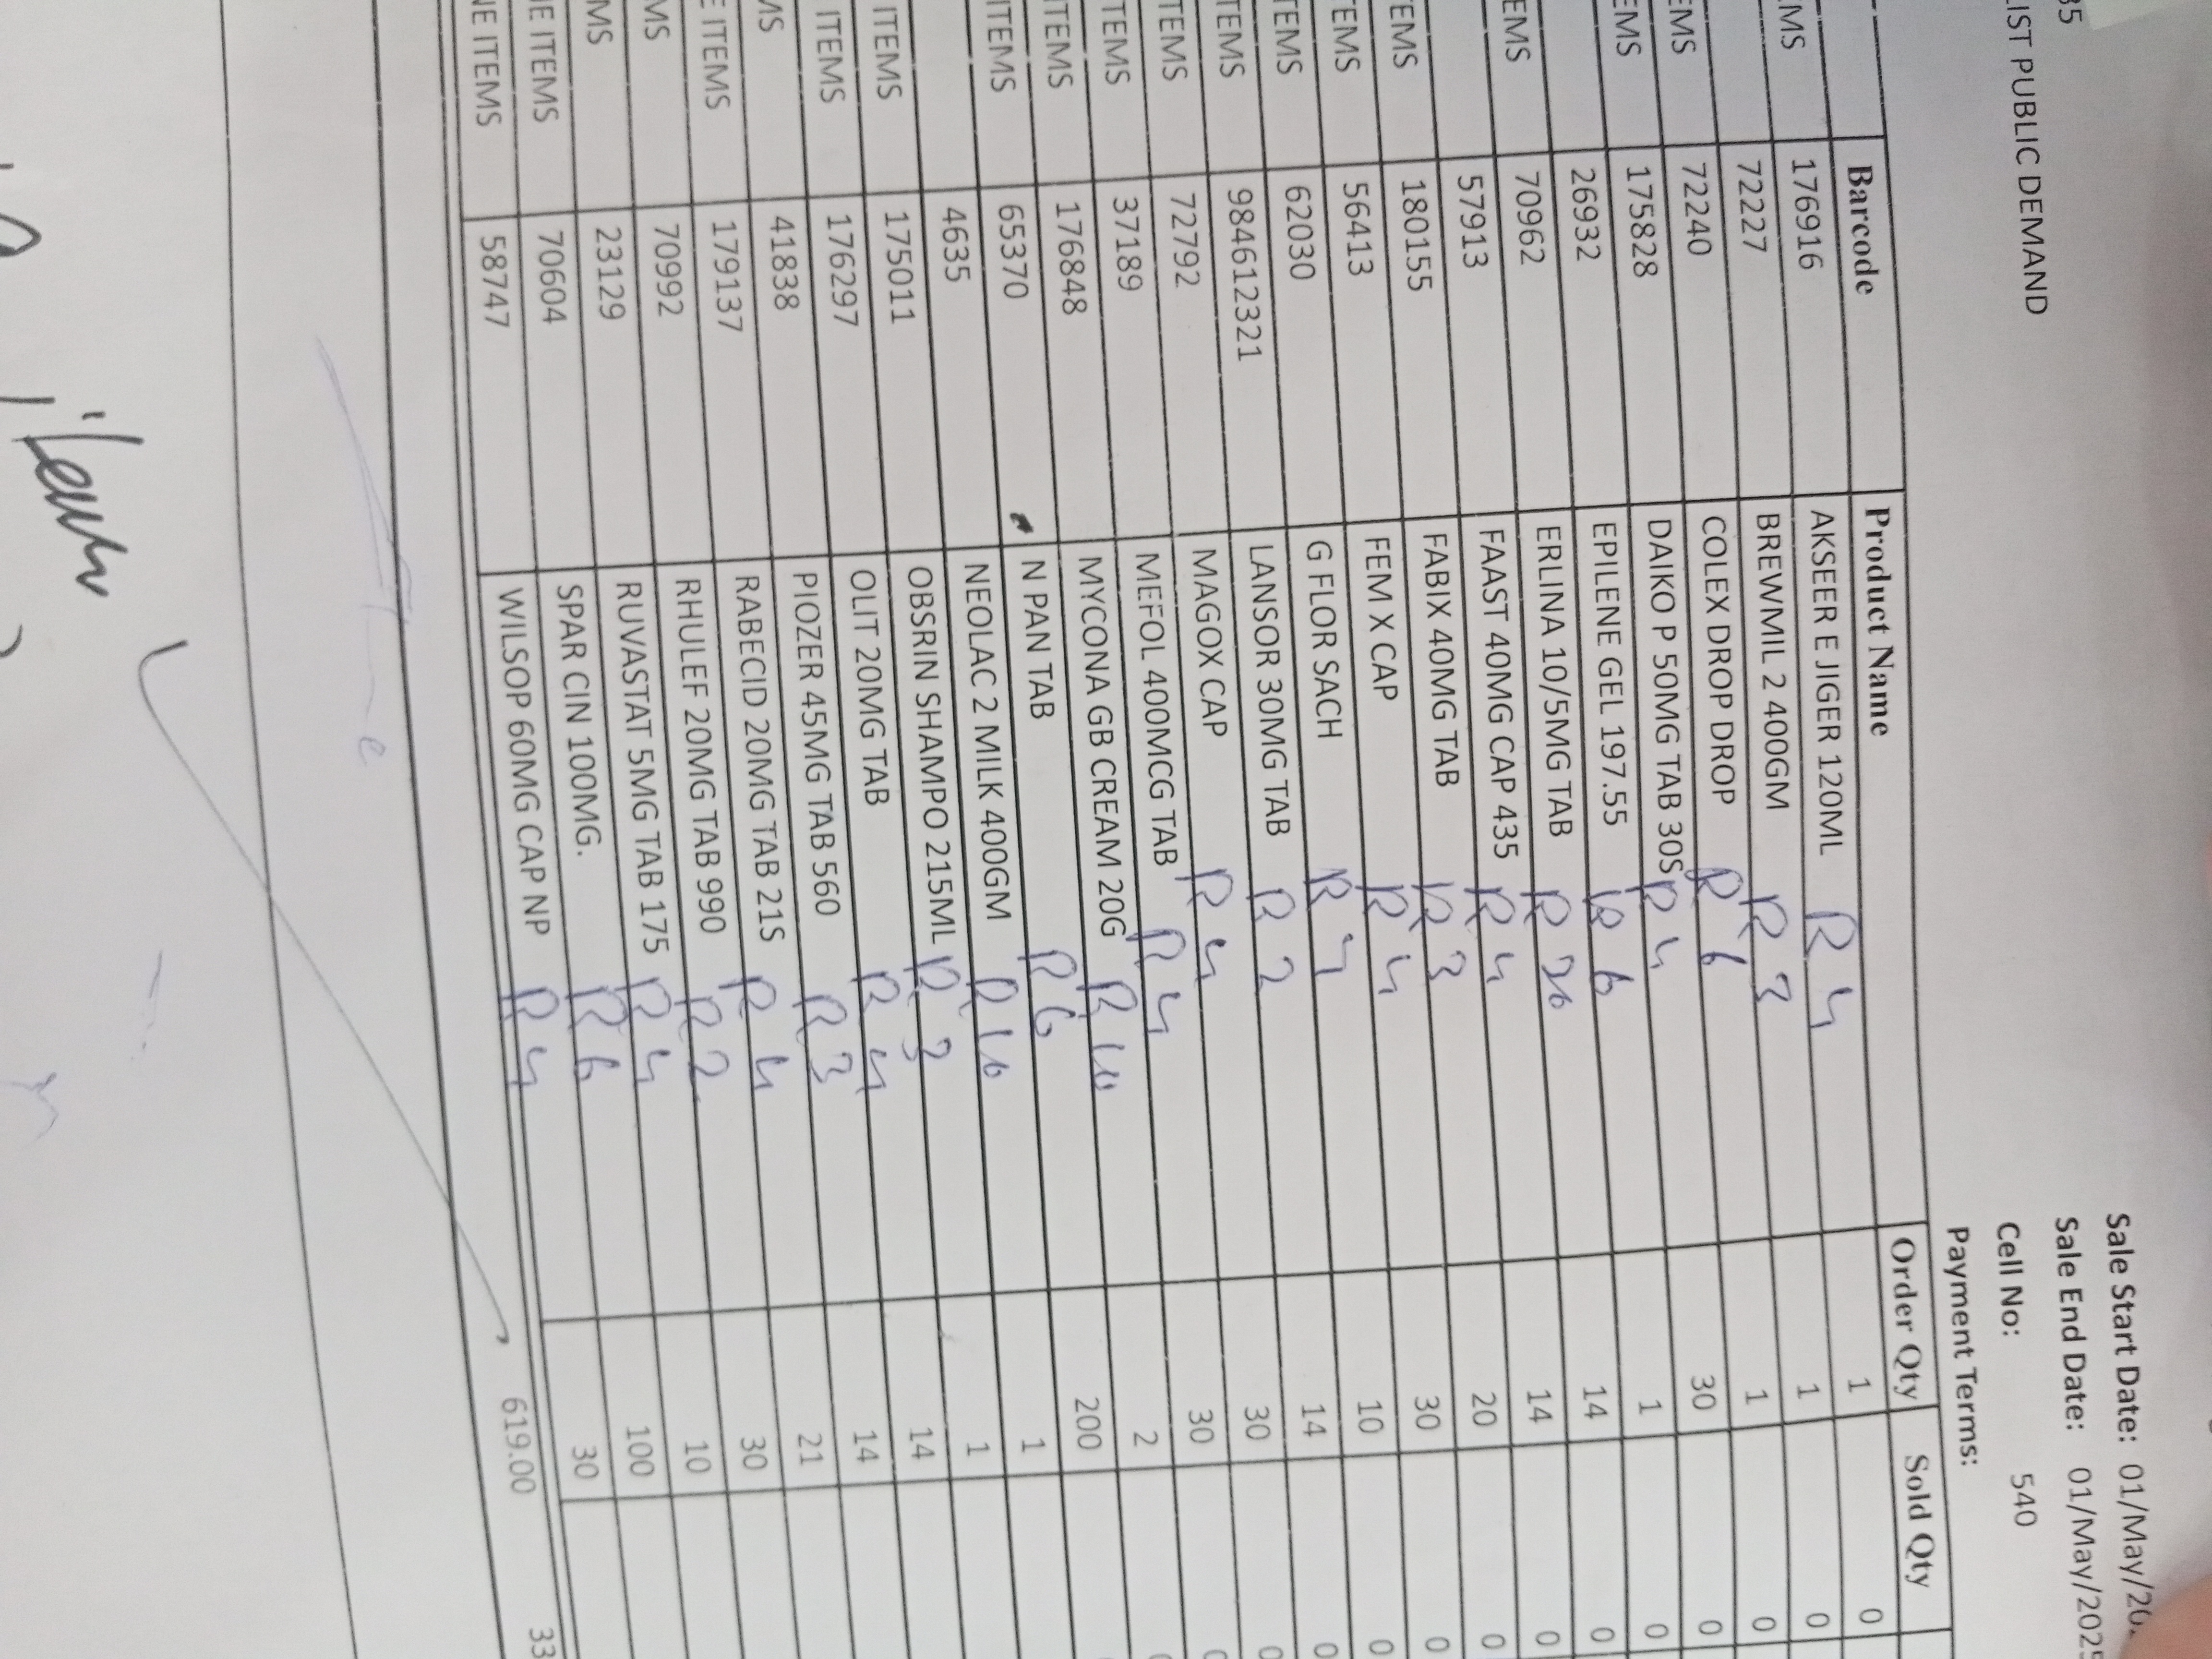 Sale Start Date: 01/May/20
35 Sale End Date: 01/May/2025
LIST PUBLIC DEMAND Cell No: 540
Payment Terms:
Barcode Product Name Order Qty Sold Qty
176916 AKSEER E JIGER 120ML R 4 1 0
EMS 72227 BREWMIL 2 400GM R 3 1 0
72240 COLEX DROP DROP R 6 1 0
EMS 175828 DAIKO P 50MG TAB 30S R 4 30 0
EMS 26932 EPILENE GEL 197.55 R 6 1 0
70962 ERLINA 10/5MG TAB R 20 14 0
EMS 57913 FAAST 40MG CAP 435 R 4 14 0
180155 FABIX 40MG TAB R 3 20 0
EMS 56413 FEM X CAP R 4 30 0
TEMS 62030 G FLOR SACH R 4 10 0
TEMS 984612321 LANSOR 30MG TAB R 2 14 0
TEMS 72792 MAGOX CAP R 4 30 0
TEMS 37189 MEFOL 400MCG TAB R 4 30 0
TEMS 176848 MYCONA GB CREAM 20G R 10 2 0
ITEMS 65370 N PAN TAB R 6 200
ITEMS 4635 NEOLAC 2 MILK 400GM R 10 1
175011 OBSRIN SHAMPO 215ML R 3 1
ITEMS 176297 OLIT 20MG TAB R 4 14
ITEMS 41838 PIOZER 45MG TAB 560 R 3 14
MS 179137 RABECID 20MG TAB 21S R 4 21
E ITEMS 70992 RHULEF 20MG TAB 990 R 2 30
MS 23129 RUVASTAT 5MG TAB 175 R 4 10
MS 70604 SPAR CIN 100MG. R 6 100
NE ITEMS 58747 WILSOP 60MG CAP NP R 4 30
NE ITEMS
619.00 33